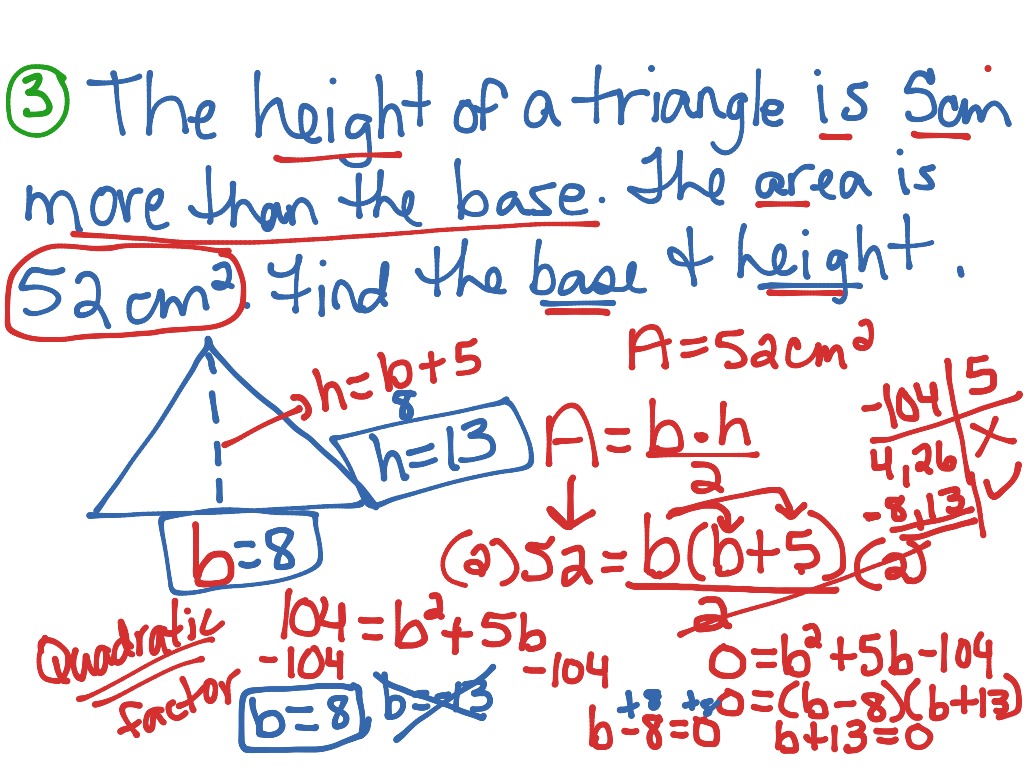 3 The height of a triangle is 5cm
more than the base. The area is
52 cm². Find the base & height.
A = 52cm²
h = b+5
8
h = 13
A = b·h / 2
-104 | 5
4,26 | X
-8,13 | ✓
b = 8
(2) 52 = b(b+5) / 2 (2)
Quadratic
factor
104 = b² + 5b
-104 -104
0 = b² + 5b - 104
0 = (b-8)(b+13)
+8 +8
b-8=0 b+13=0
b = 8 b = -13